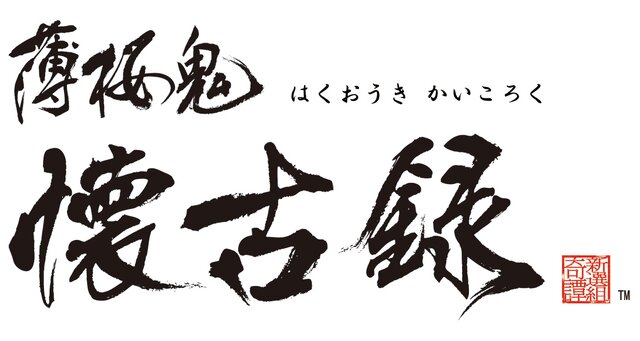 薄桜鬼 はくおうき かいころく
懐古録
新選組
奇譚
TM